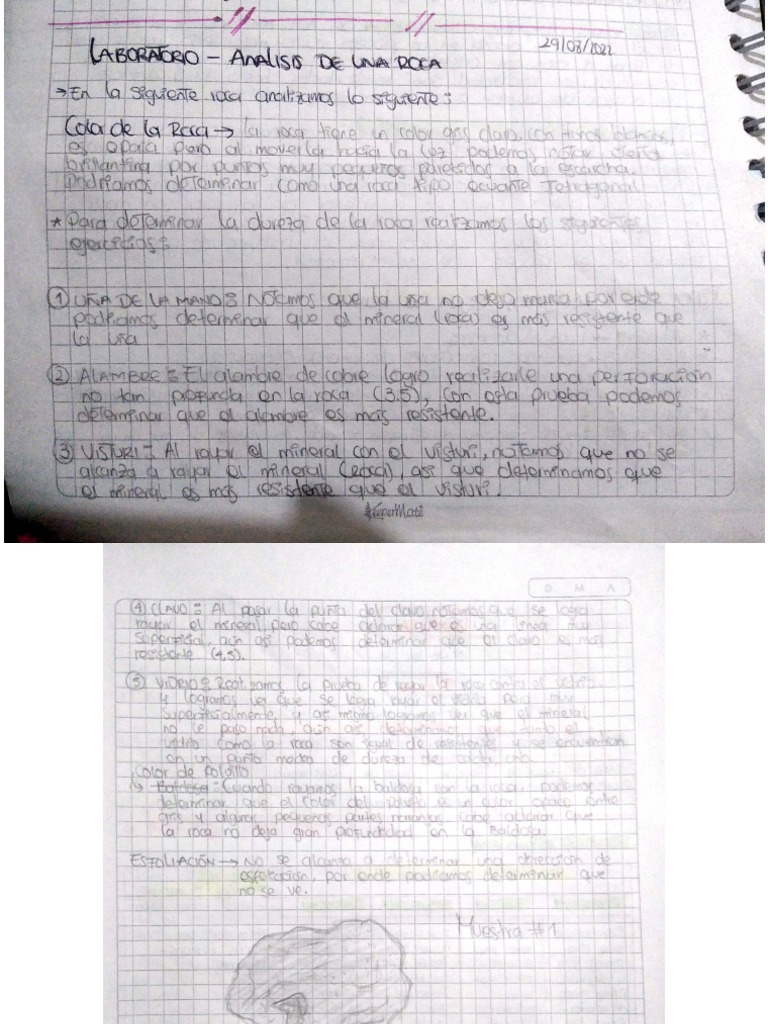 29/08/2022
LABORATORIO - ANALISIS DE UNA ROCA
→ En la siguiente roca analizamos lo siguiente:
Color de la Roca → la roca tiene un color gris claro, con tonos blancos,
es opaca pero al moverla hacia la luz podemos notar cierta
brillantina por puntos muy pequeños parecidos a la escarcha.
Podriamos determinar como una roca tipo ecuante Tetragonal
* Para determinar la dureza de la roca realizamos los siguientes
ejercicios:
① UÑA DE LA MANO: Notamos que la uña no dejo marca por ende
podriamos determinar que el mineral (roca) es más resistente que
la uña
② ALAMBRE: El alambre de cobre logro realizarle una perforación
no tan profunda en la roca (3,5), con esta prueba podemos
determinar que el alambre es mas resistente.
③ VISTURI: Al rayar el mineral con el visturi, notamos que no se
alcanza a rayar el mineral (roca), asi que determinamos que
el mineral es mas resistente que el visturi.
SuperMate
D M A
④ CLAVO: Al pasar la punta del clavo notamos que se logra
rayar el mineral pero cabe aclarar que es una linea muy
superficial, aún asi podemos determinar que el clavo es mas
resistente (4,5).
⑤ VIDRIO: Realizamos la prueba de rayar la roca contra el vidrio
y logramos ver que se logra rayar el vidrio pero muy
superficialmente, y asi mismo logramos ver que el mineral
no le paso nada, aún asi, determinamos que tanto el
vidrio como la roca son igual de resistente y se encuentran
en un punto medio de dureza de cada uno
Color de Polvito
→ Baldosa: Cuando rayamos la baldosa con la roca, podemos
determinar que el color del polvito es un color opaco entre
gris y algunas pequeñas partes naranjas, cabe aclarar que
la roca no deja gran profundidad en la Baldosa.
ESFOLIACIÓN → No se alcanza a determinar una dirección de
esfoliación, por ende podriamos determinar que
no se ve.
Muestra #1